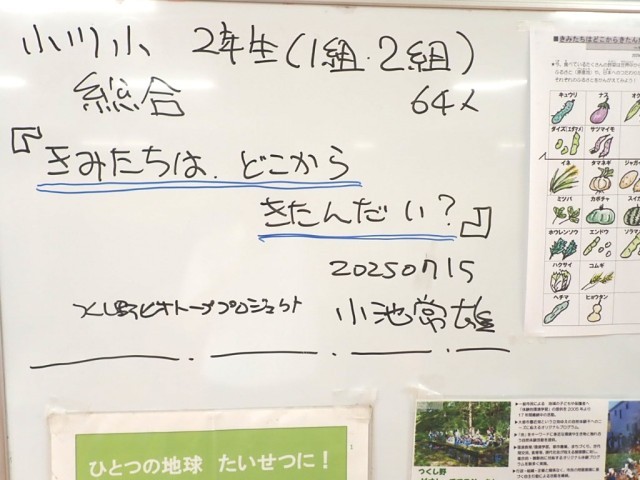 小川小 2年生(1組・2組)
総合 64人
『きみたちは、どこから
きたんだい?』
20250715
つくし野ビオトーププロジェクト 小池常雄
■きみたちはどこからきたん
キュウリ ナス
ダイズ(エダマメ) サツマイモ
イネ タマネギ ジャガ
ミツバ カボチャ スイカ
ホウレンソウ エンドウ ソラマ
ハクサイ コムギ
ヘチマ ヒョウタン
ひとつの地球 たいせつに!
つくし野